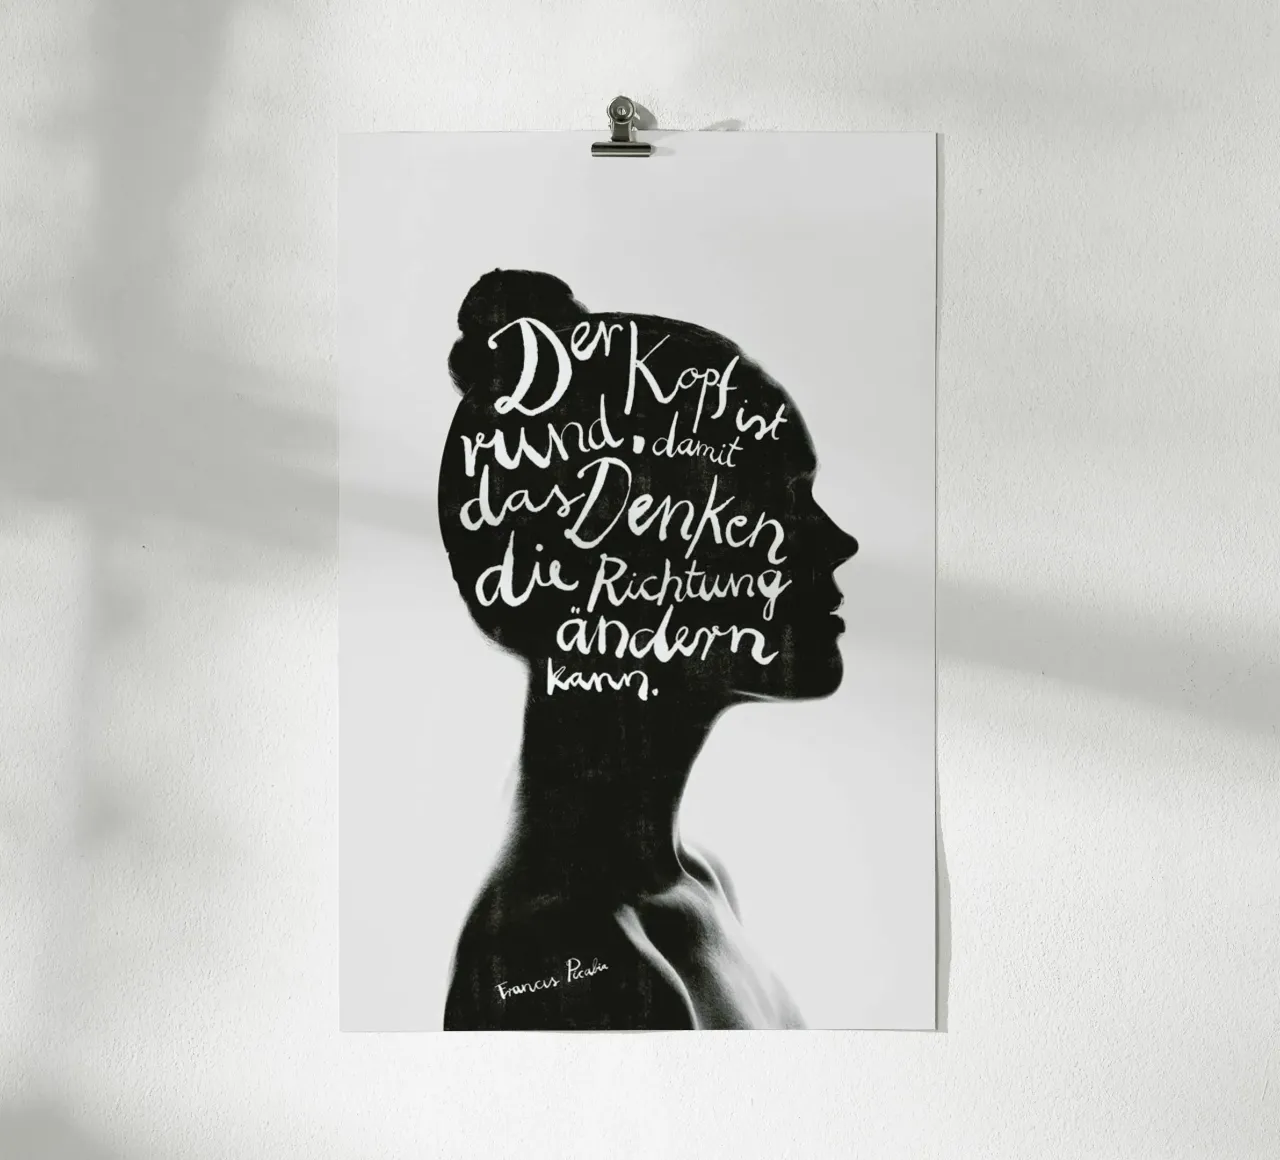 Der Kopf ist
rund. damit
das Denken
die Richtung
ändern
kann.
Francis Picabia